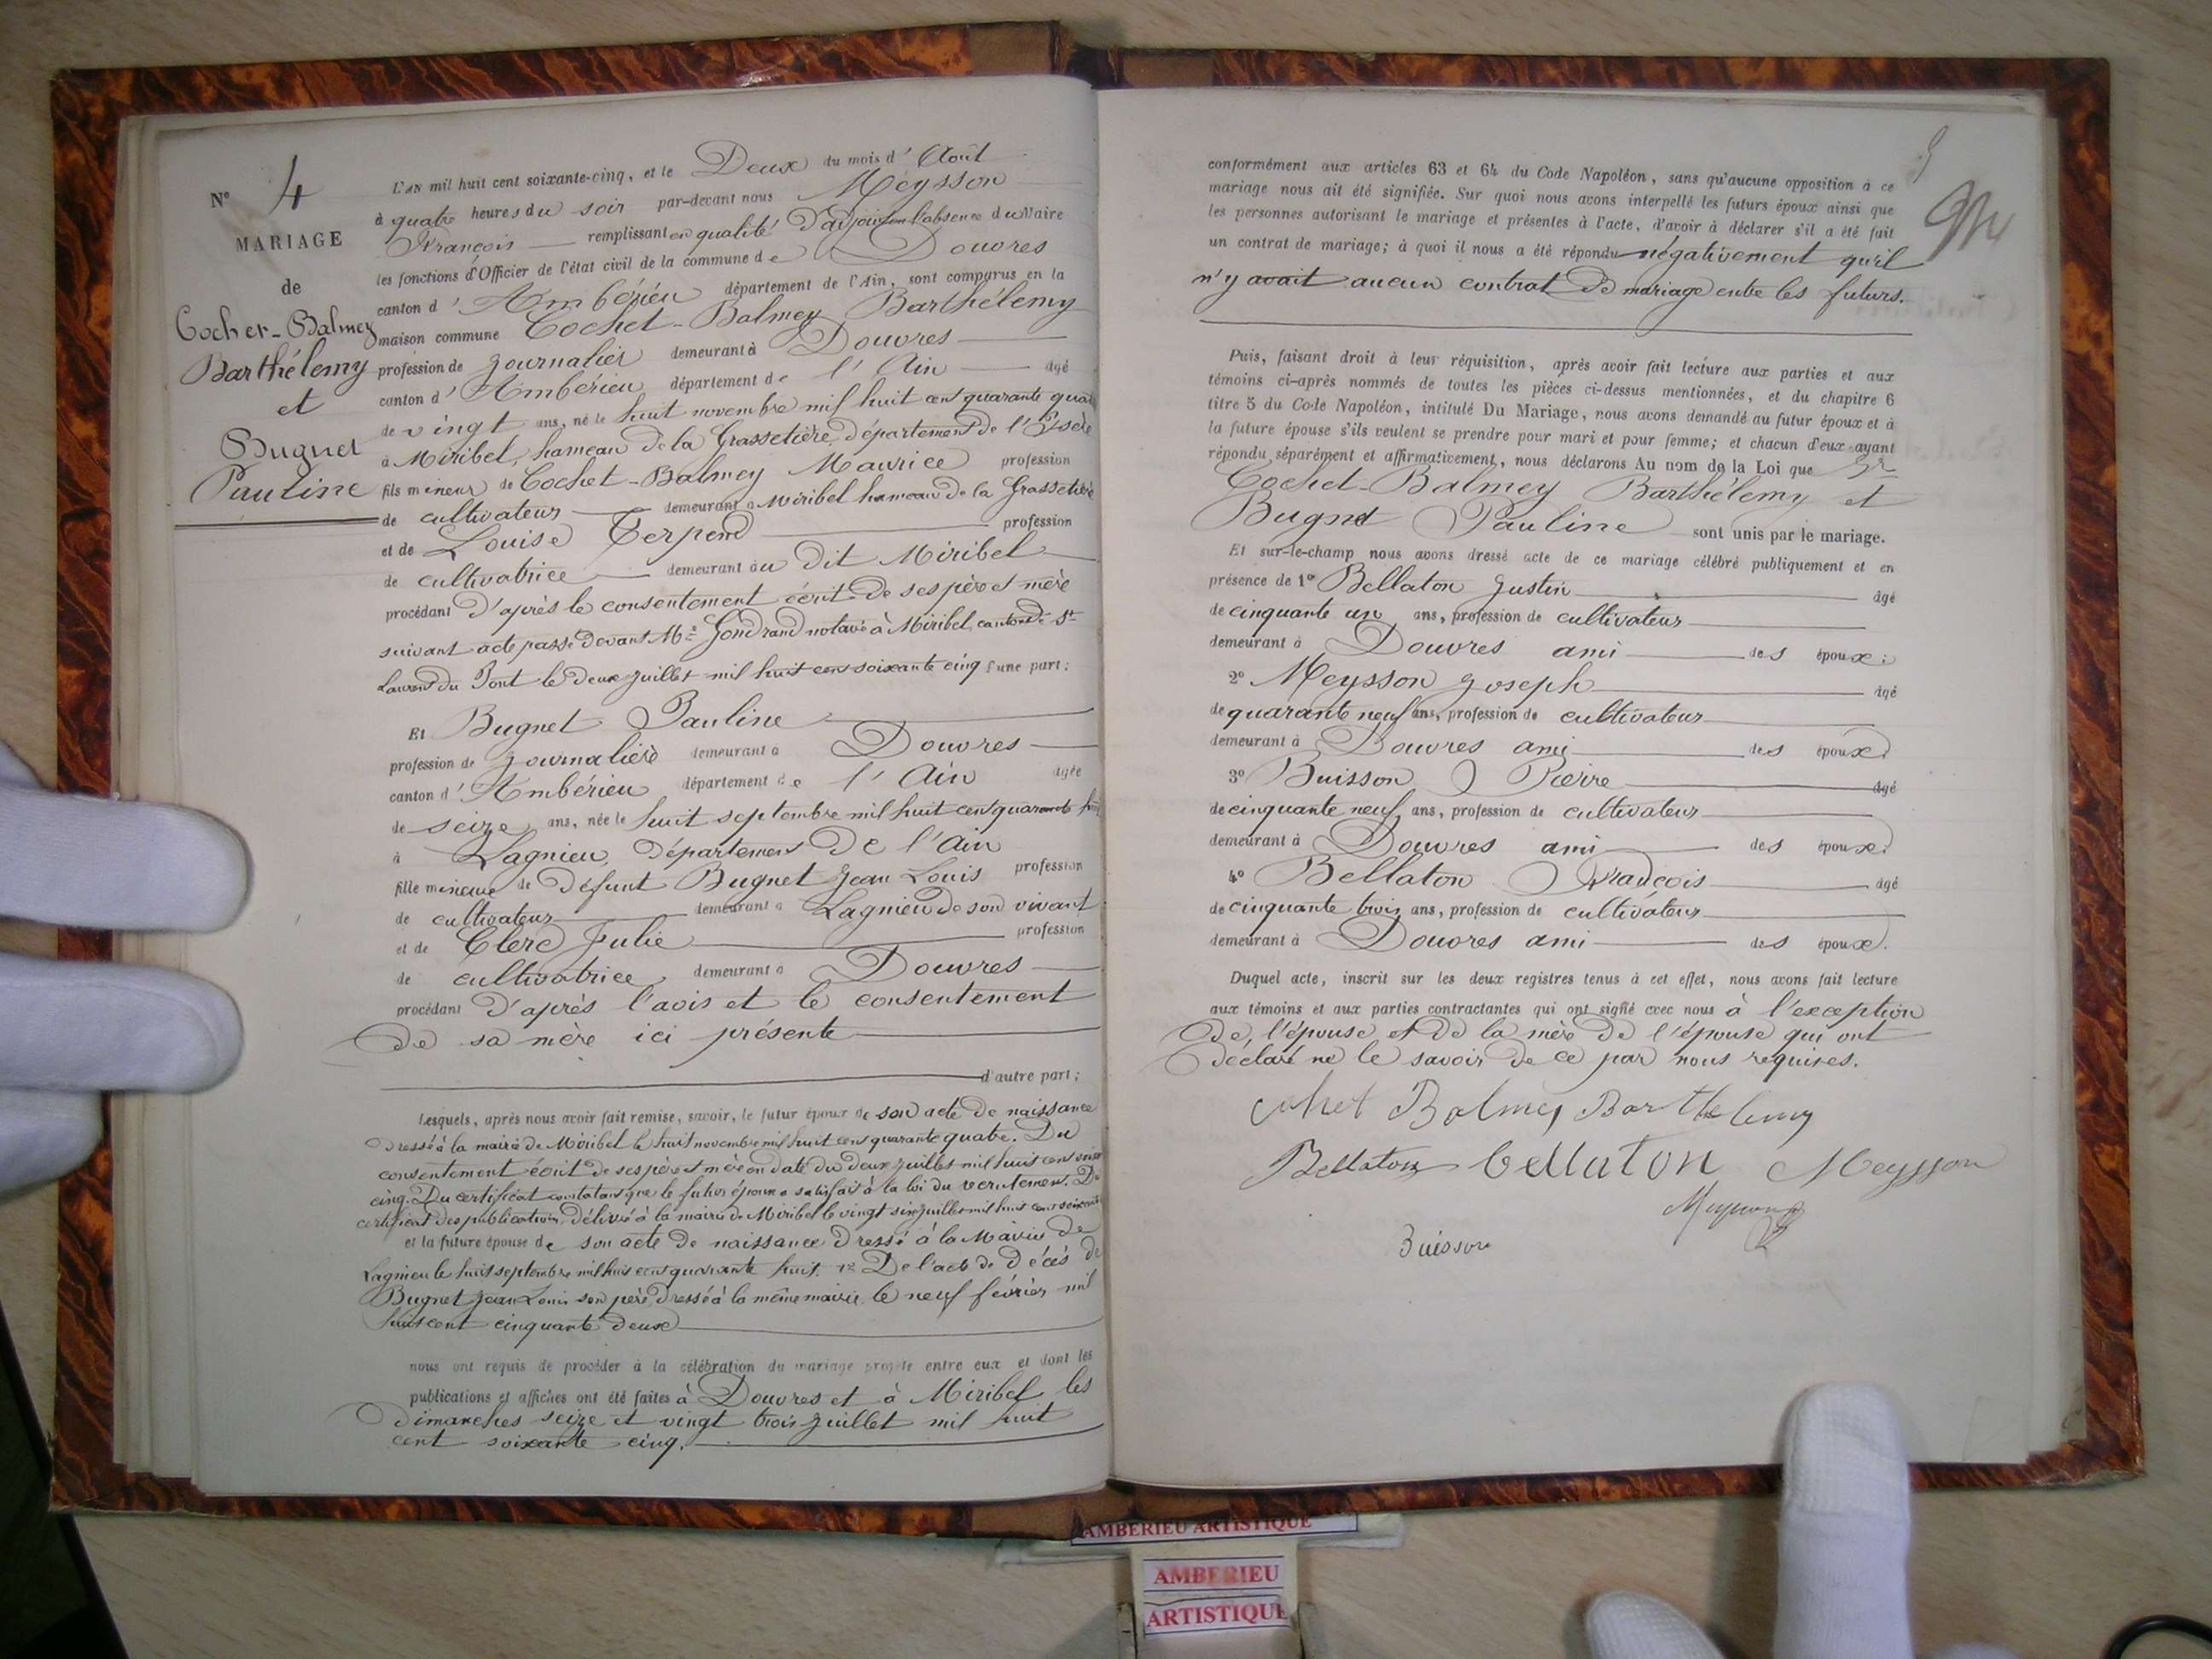 N° 4
MARIAGE
de
Cochet-Balmey
Barthélemy
et
Bugnet
Pauline
L'AN mil huit cent soixante-cinq, et le Deux du mois d' Août
à quatre heures du soir par-devant nous Meysson
François remplissant en qualité d'adjoint en l'absence du Maire
les fonctions d'Officier de l'état civil de la commune de Douvres
canton d' Ambérieu département de l'Ain, sont comparus en la
maison commune Cochet-Balmey Barthélemy
profession de journalier demeurant à Douvres
canton d' Ambérieu département de l' Ain âgé
de vingt ans, né le huit novembre mil huit cent quarante quatre
à Miribel, hameau de la Grassetière, département de l'Isère
fils mineur de Cochet-Balmey Maurice profession
de cultivateur demeurant à Miribel hameau de la Grassetière
et de Louise Terpend profession
de cultivatrice demeurant au dit Miribel
procédant d'après le consentement écrit de ses père et mère
suivant acte passé devant Me Gondrand notaire à Miribel, canton de St
Laurent du Pont le deux juillet mil huit cent soixante cinq d'une part;
Et Bugnet Pauline
profession de journalière demeurant à Douvres
canton d' Ambérieu département de l' Ain âgée
de seize ans, née le huit septembre mil huit cent quarante huit
à Lagnieu, département de l'Ain
fille mineure de défunt Bugnet Jean Louis profession
de cultivateur demeurant à Lagnieu de son vivant
et de Clerc Julie profession
de cultivatrice demeurant à Douvres
procédant d'après l'avis et le consentement
de sa mère ici présente
d'autre part;
Lesquels, après nous avoir fait remise, savoir, le futur époux de son acte de naissance
dressé à la mairie de Miribel le huit novembre mil huit cent quarante quatre. Du
consentement écrit de ses père et mère en date du deux juillet mil huit cent soixante
cinq. Du certificat constatant que le futur époux a satisfait à la loi du recrutement. Du
certificat des publications délivré à la mairie de Miribel le vingt six juillet mil huit cent soixante
et la future épouse de son acte de naissance dressé à la Mairie de
Lagnieu le huit septembre mil huit cent quarante huit. De l'acte de décès de
Bugnet Jean Louis son père, dressé à la même mairie le neuf février mil
huit cent cinquante deux
nous ont requis de procéder à la célébration du mariage projeté entre eux et dont les
publications et affiches ont été faites à Douvres et à Miribel les
dimanches seize et vingt trois juillet mil huit
cent soixante cinq.
5
conformément aux articles 63 et 64 du Code Napoléon, sans qu'aucune opposition à ce
mariage nous ait été signifiée. Sur quoi nous avons interpellé les futurs époux ainsi que
les personnes autorisant le mariage et présentes à l'acte, d'avoir à déclarer s'il a été fait
un contrat de mariage; à quoi il nous a été répondu négativement qu'il
n'y avait aucun contrat de mariage entre les futurs.
Puis, faisant droit à leur réquisition, après avoir fait lecture aux parties et aux
témoins ci-après nommés de toutes les pièces ci-dessus mentionnées, et du chapitre 6
titre 5 du Code Napoléon, intitulé Du Mariage, nous avons demandé au futur époux et à
la future épouse s'ils veulent se prendre pour mari et pour femme; et chacun d'eux ayant
répondu séparément et affirmativement, nous déclarons Au nom de la Loi que Sr
Cochet-Balmey Barthélemy et
Bugnet Pauline sont unis par le mariage.
Et sur-le-champ nous avons dressé acte de ce mariage célébré publiquement et en
présence de 1° Bellaton Justin âgé
de cinquante un ans, profession de cultivateur
demeurant à Douvres ami des époux;
2° Meysson Joseph âgé
de quarante neuf ans, profession de cultivateur
demeurant à Douvres ami des époux;
3° Buisson Pierre âgé
de cinquante neuf ans, profession de cultivateur
demeurant à Douvres ami des époux;
4° Bellaton François âgé
de cinquante trois ans, profession de cultivateur
demeurant à Douvres ami des époux.
Duquel acte, inscrit sur les deux registres tenus à cet effet, nous avons fait lecture
aux témoins et aux parties contractantes qui ont signé avec nous à l'exception
de l'épouse et de la mère de l'épouse qui ont
déclaré ne le savoir de ce par nous requises.
cohet Balmey Barthelemy
Bellaton bellaton Meysson
Buisson
AMBERIEU ARTISTIQUE
AMBERIEU
ARTISTIQUE